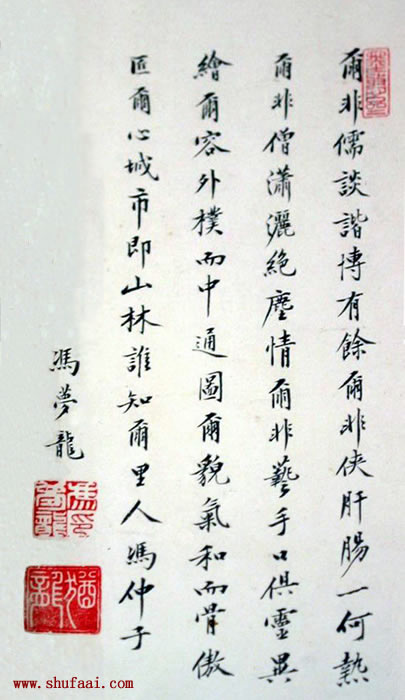 爾非儒談諧博有餘爾非俠肝腸一何熱
爾非僧瀟灑絶塵情爾非藝手口俱靈異
繪爾容外樸而中通圖爾貌氣和而骨傲
匡爾心城市即山林誰知爾里人馮仲子
馮夢龍
www.shufaai.com